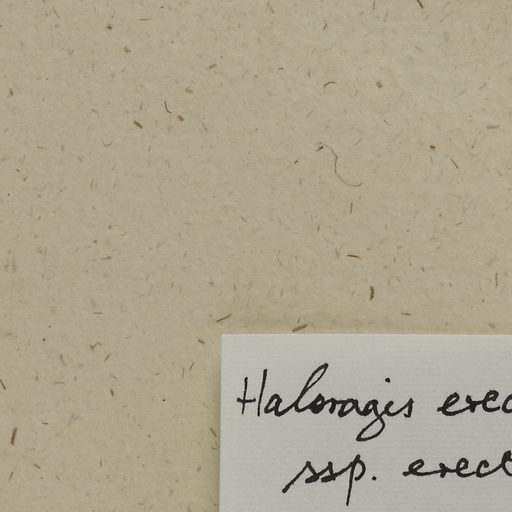 Haloragis erec
ssp. erect